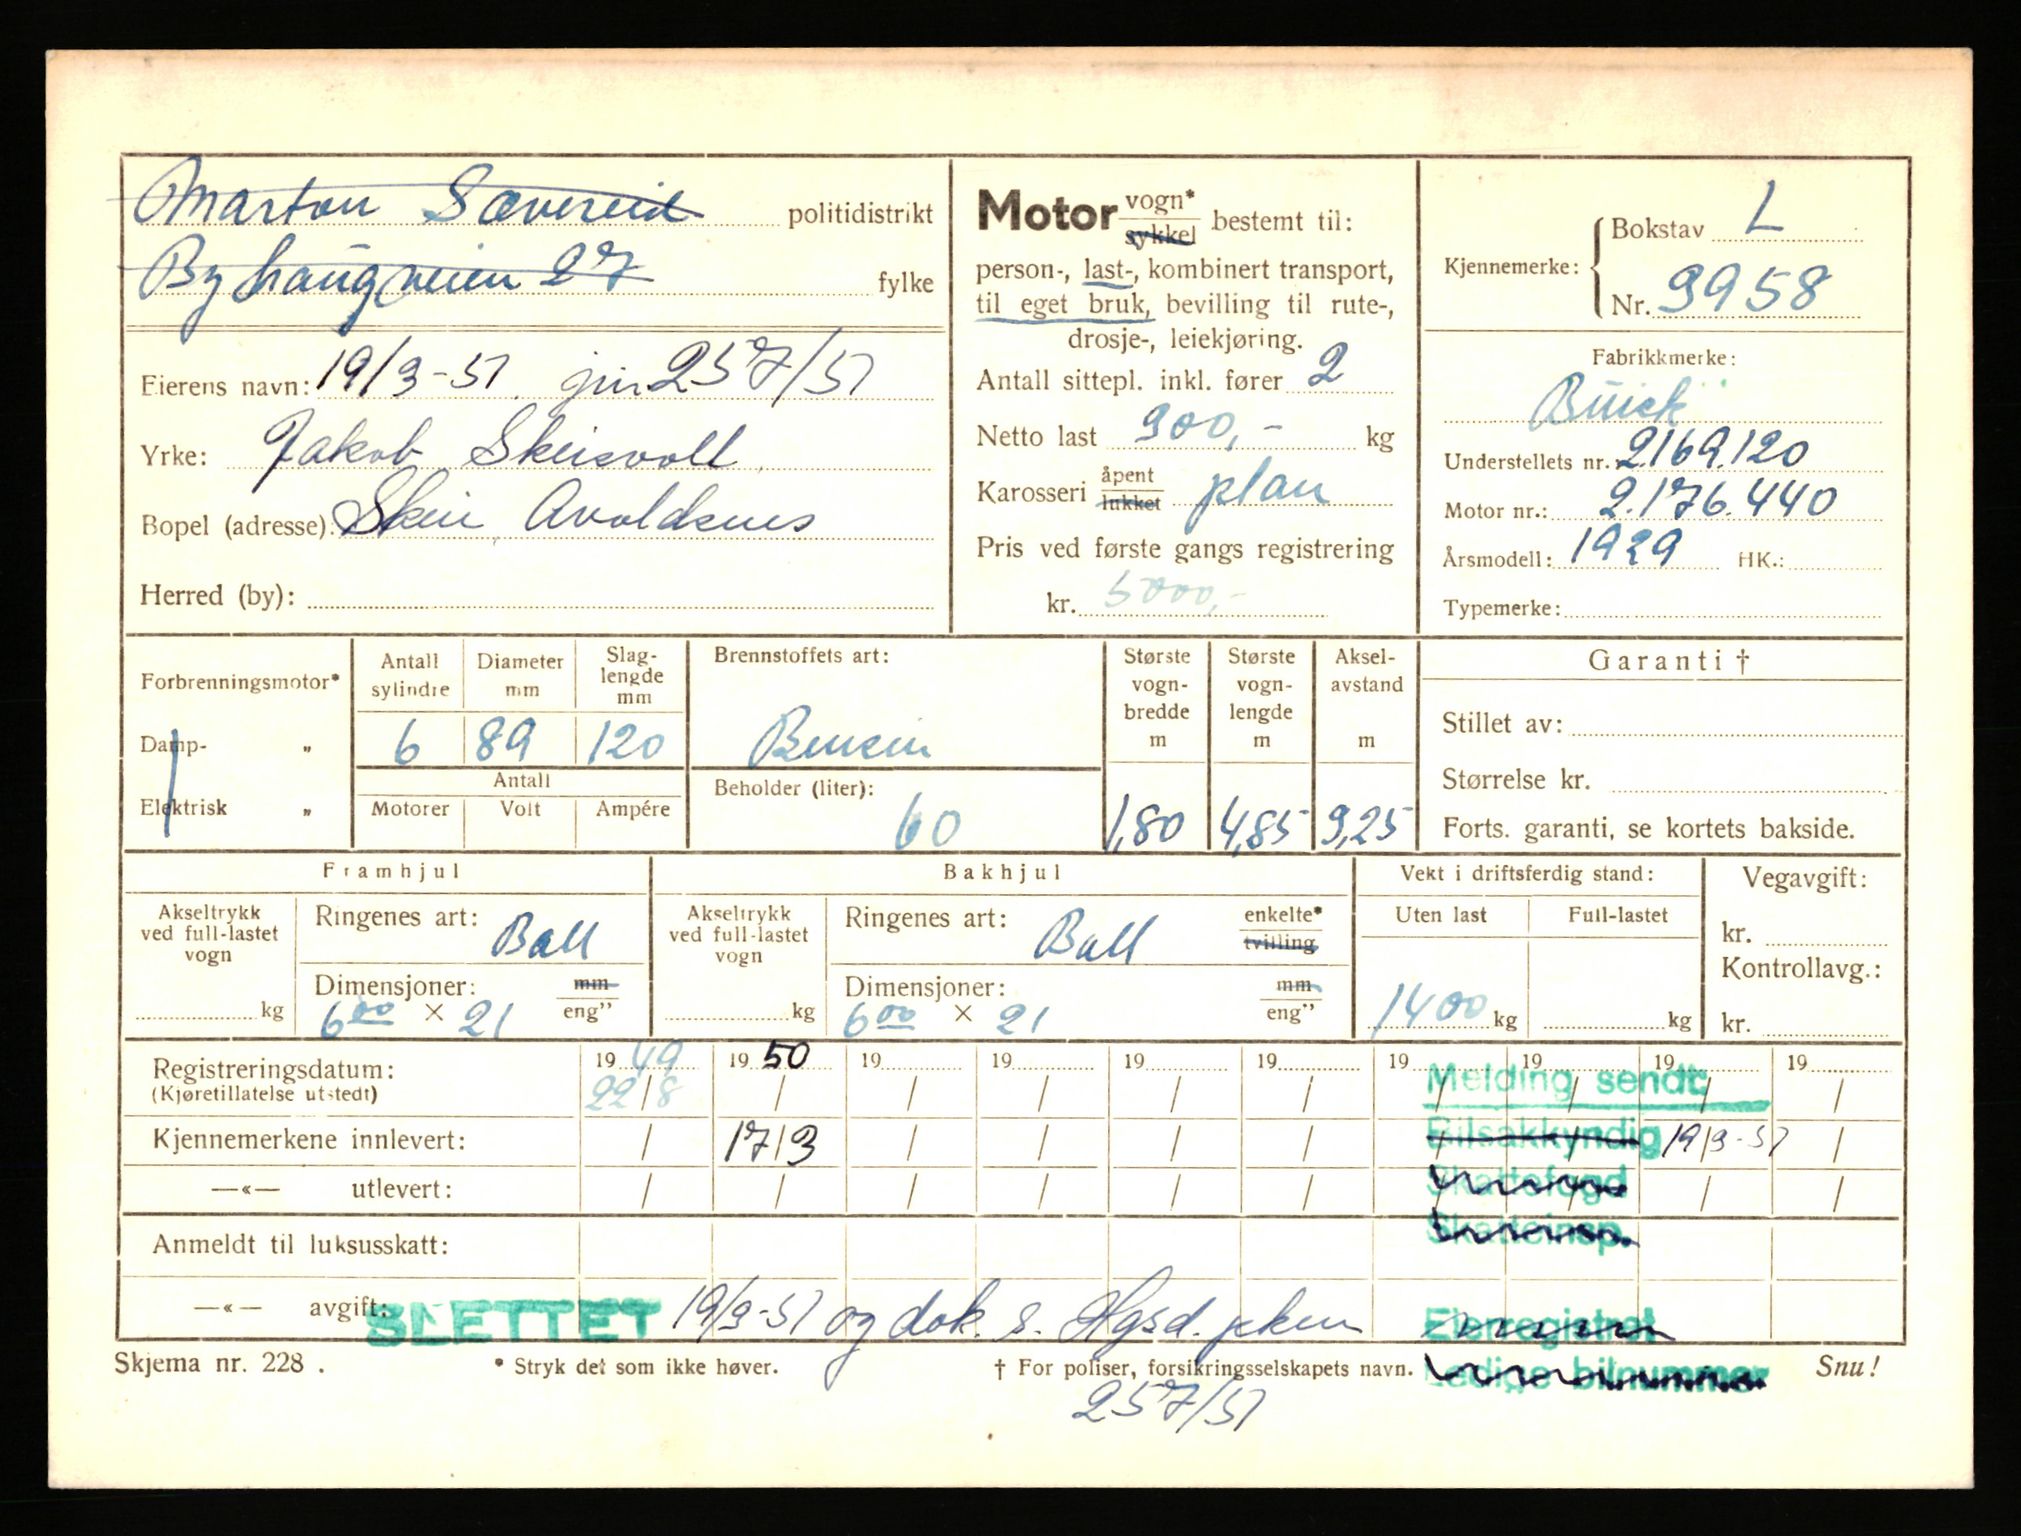 Marton Sævereid politidistrikt
Byhaugveien 27 fylke
Eierens navn: 19/3-51 jnr 257/51
Yrke: Jakob Skeisvoll
Bopel (adresse): Skeie Avaldsnes
Herred (by):
Motor vogn* sykkel bestemt til:
person-, last-, kombinert transport,
til eget bruk, bevilling til rute-,
drosje-, leiekjøring.
Antall sittepl. inkl. fører 2
Netto last 900,- kg
Karosseri åpent lukket plan
Pris ved første gangs registrering
kr. 5000,-
Kjennemerke: Bokstav L
Nr. 9958
Fabrikkmerke:
Buick
Understellets nr. 2169.120
Motor nr.: 2.176.440
Årsmodell: 1929 HK.:
Typemerke:
Forbrenningsmotor*
Damp- „
Elektrisk „
Antall sylindre 6
Diameter mm 89
Slag-lengde mm 120
Antall
Motorer Volt Ampére
Brennstoffets art:
Bensin
Beholder (liter):
60
Største vogn-bredde m 1,80
Største vogn-lengde m 4,85
Aksel-avstand m 3,25
Garanti †
Stillet av:
Størrelse kr.
Forts. garanti, se kortets bakside.
Framhjul
Akseltrykk ved full-lastet vogn
kg
Ringenes art: Ball
Dimensjoner: mm
6 00 × 21 eng”
Bakhjul
Akseltrykk ved full-lastet vogn
kg
Ringenes art: Ball enkelte* tvilling
Dimensjoner: mm
6 00 × 21 eng”
Vekt i driftsferdig stand:
Uten last Full-lastet
1400 kg kg
Vegavgift:
kr.
Kontrollavg.:
kr.
Registreringsdatum: 19 49 19 50 19 19 19 19 19 19 19 19
(Kjøretillatelse utstedt) 22/8 / / / / / / / / /
Melding sendt:
Kjennemerkene innlevert: / 17/3 / / / / / / /
Bilsakkyndig 19/3-51
—«— utlevert: / / / / / / / / / /
Skattefogd
Skatteinsp.
Anmeldt til luksusskatt:
—«— avgift:
SLETTET 19/3-51 og dok. s. Hgsd. pkm
Eierregistret
Ledige bilnummer
Skjema nr. 228 . * Stryk det som ikke høver. † For poliser, forsikringsselskapets navn. Snu!
257/51